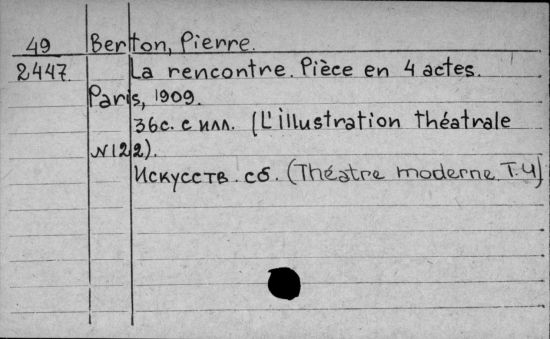 49 Berton, Pierre.
2447. La rencontre. Pièce en 4 actes.
Paris, 1909.
36с. с илл. (L'illustration théatrale
N122).
Искусств. сб. (Théatre moderne. T.4)